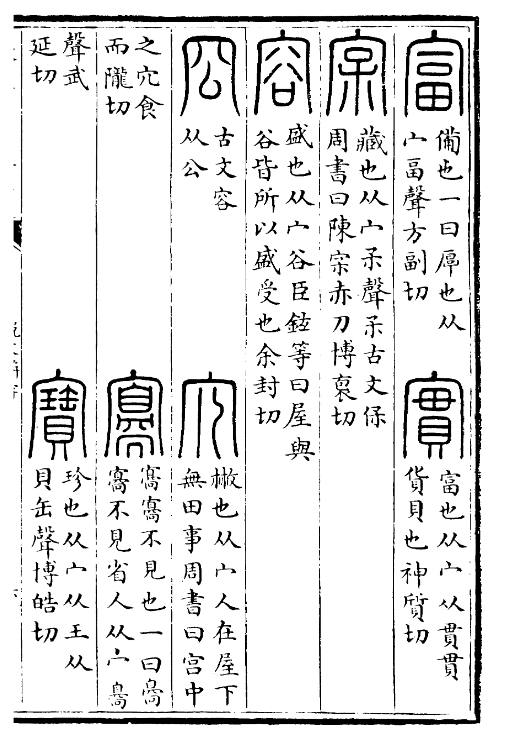 富
備也一曰厚也从
宀畐聲方副切
實
富也从宀从貫貫
貨貝也神質切
㝒
藏也从宀𤓽聲𤓽古文保
周書曰陳㝒赤刀博裒切
容
盛也从宀谷臣鉉等曰屋與
谷皆所以盛受也余封切
㕣
古文容
从公
宂
㪔也从宀人在屋下
無田事周書曰宫中
之宂食
而隴切
𡪺
𡪺𡪺不見也一曰𡪺
𡪺不見省人从宀𦤝
聲武
延切
寶
珍也从宀从王从
貝缶聲博皓切